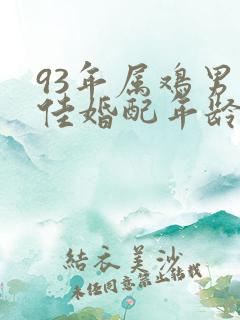 93年属鸡男
佳婚配年龄
結衣美沙
未任同意禁止转载